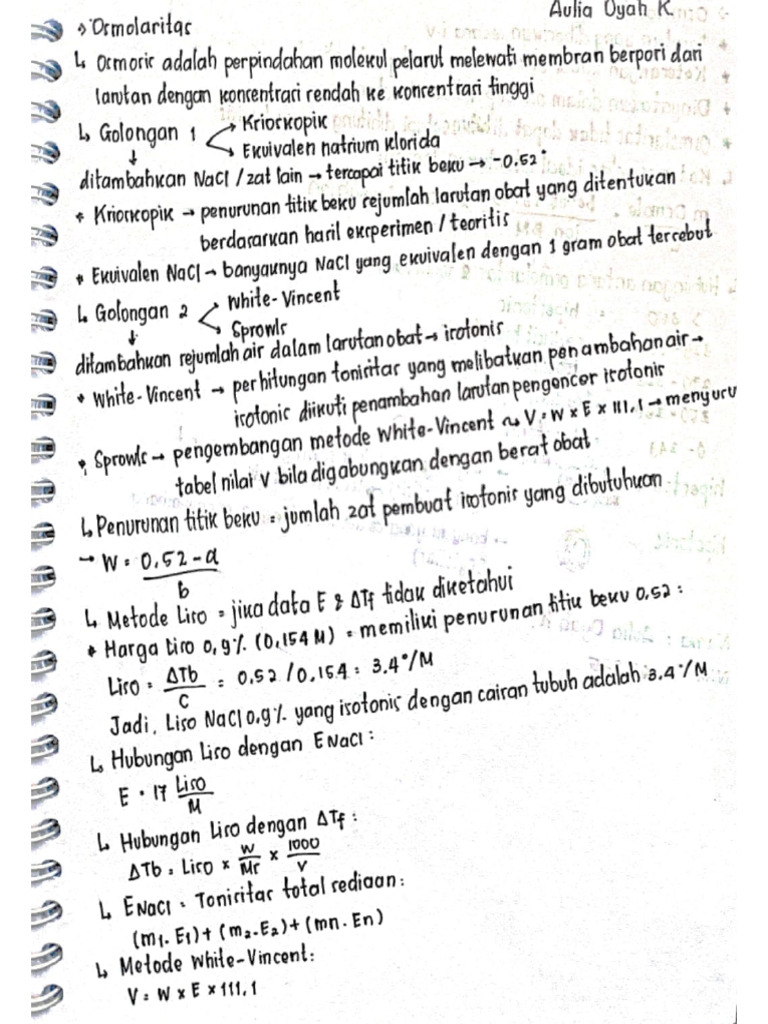 Aulia Dyah K.
→ Osmolaritas
↳ Osmosis adalah perpindahan molekul pelarut melewati membran berpori dari
larutan dengan konsentrasi rendah ke konsentrasi tinggi
↳ Golongan 1 → Krioskopik
→ Ekuivalen natrium klorida
ditambahkan NaCl / zat lain → tercapai titik beku → -0.52°
* Krioskopik → penurunan titik beku sejumlah larutan obat yang ditentukan
berdasarkan hasil eksperimen / teoritis
* Ekuivalen NaCl → banyaknya NaCl yang ekuivalen dengan 1 gram obat tersebut
↳ Golongan 2 → White-Vincent
→ Sprowls
ditambahkan sejumlah air dalam larutan obat → isotonis
* White-Vincent → perhitungan tonisitas yang melibatkan penambahan air →
isotonic diikuti penambahan larutan pengencer isotonis
* Sprowls → pengembangan metode White-Vincent ~> V = W × E × 111,1 → menyusu
tabel nilai V bila digabungkan dengan berat obat
↳ Penurunan titik beku = jumlah zat pembuat isotonis yang dibutuhkan
→ W = 0,52 - a
b
↳ Metode Liso = jika data E & ΔTf tidak diketahui
* Harga Liso 0,9% (0,154 M) = memiliki penurunan titik beku 0,52 :
Liso = ΔTb / C = 0,52 / 0,154 = 3.4°/M
Jadi, Liso NaCl 0,9% yang isotonis dengan cairan tubuh adalah 3.4°/M
↳ Hubungan Liso dengan E NaCl :
E = 17 Liso / M
↳ Hubungan Liso dengan ΔTf :
ΔTb = Liso × W / Mr × 1000 / V
↳ E NaCl = Tonisitas total sediaan :
(m1 . E1) + (m2 . E2) + (mn . En)
↳ Metode White-Vincent :
V = W × E × 111,1